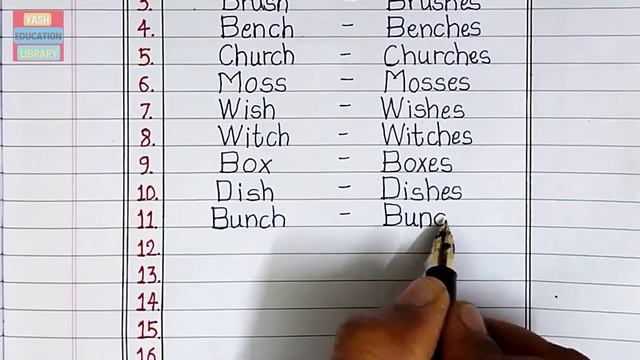 YASH
EDUCATION
LIBRARY
3. Brush Brushes
4. Bench - Benches
5. Church - Churches
6. Moss - Mosses
7. Wish - Wishes
8. Witch - Witches
9. Box - Boxes
10. Dish - Dishes
11. Bunch - Bunc
12.
13.
14.
15.
16